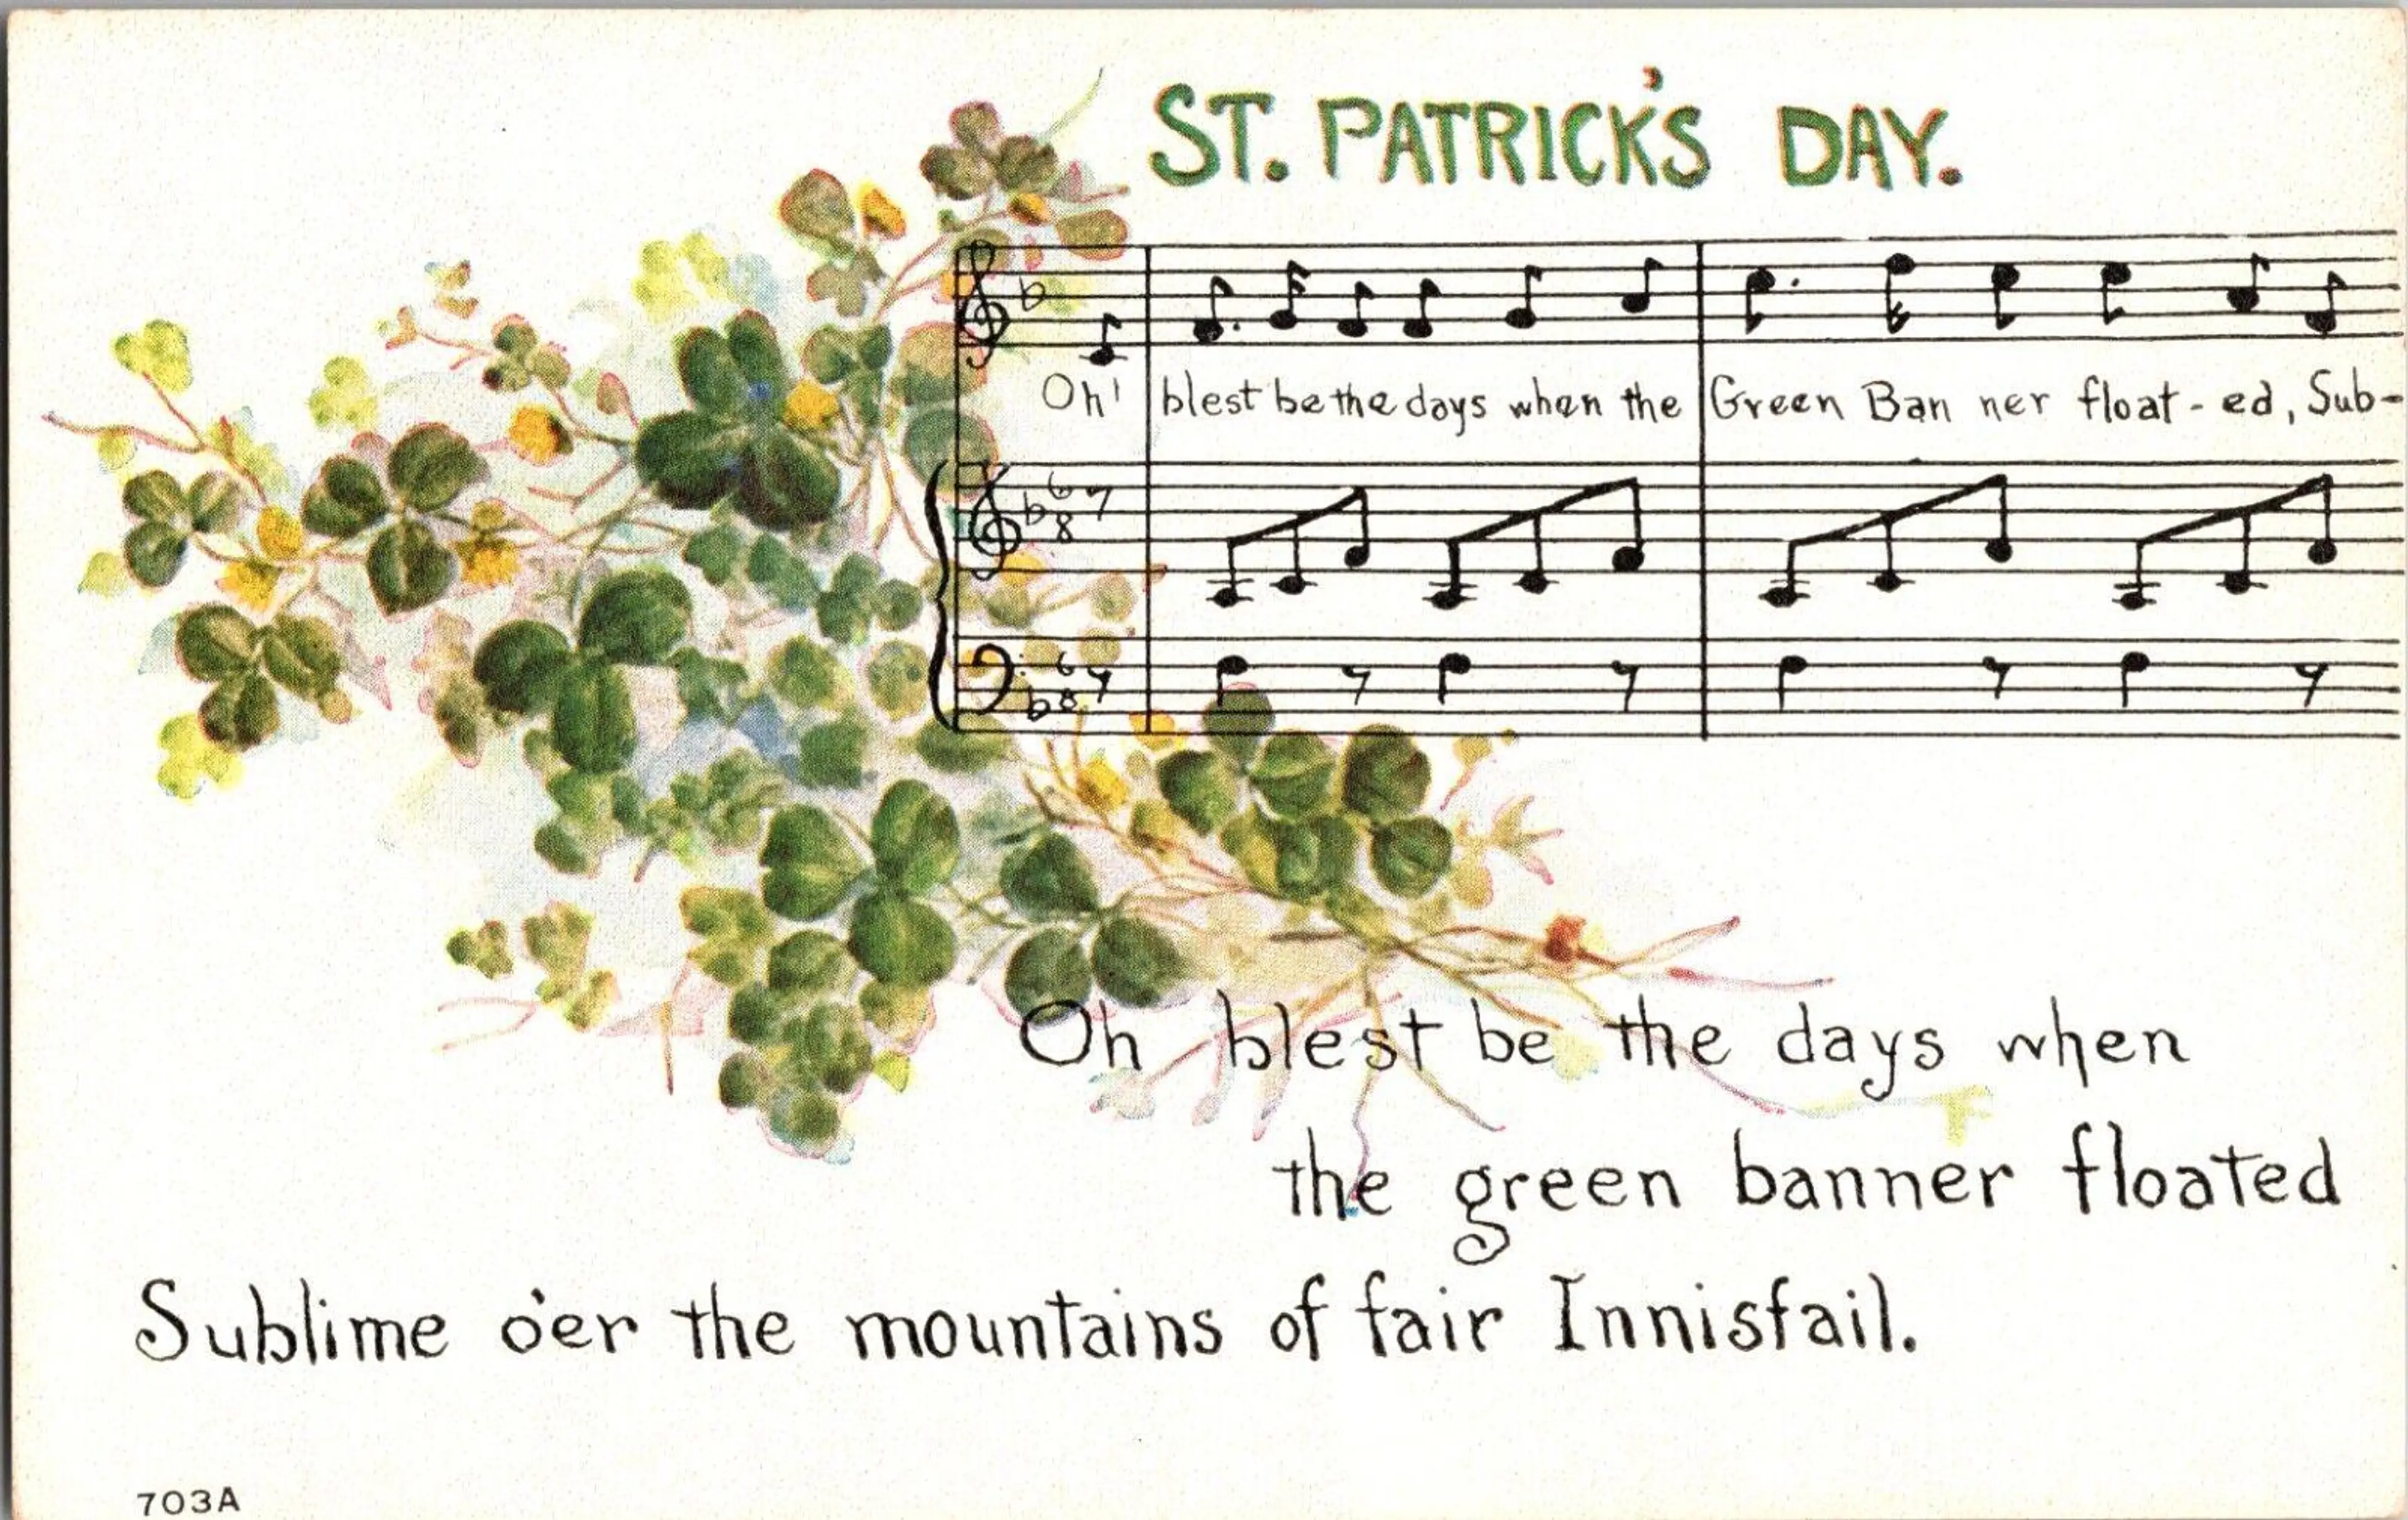 ST. PATRICK'S DAY.
Oh! blest be the days when the Green Ban ner float - ed, Sub-
6 8
6 8
Oh blest be the days when
the green banner floated
Sublime o'er the mountains of fair Innisfail.
703A